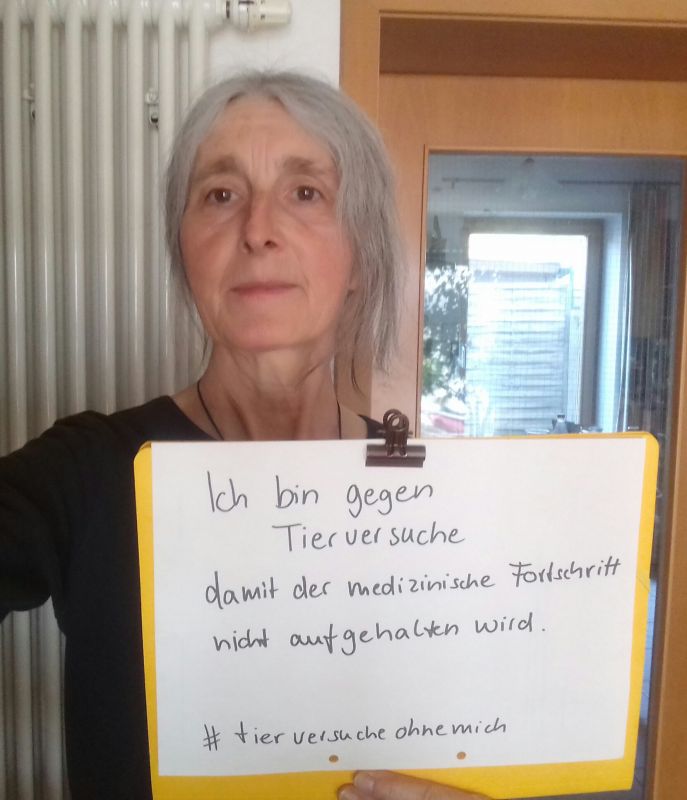 Ich bin gegen
Tierversuche
damit der medizinische Fortschritt
nicht aufgehalten wird.
# tierversucheohnemich